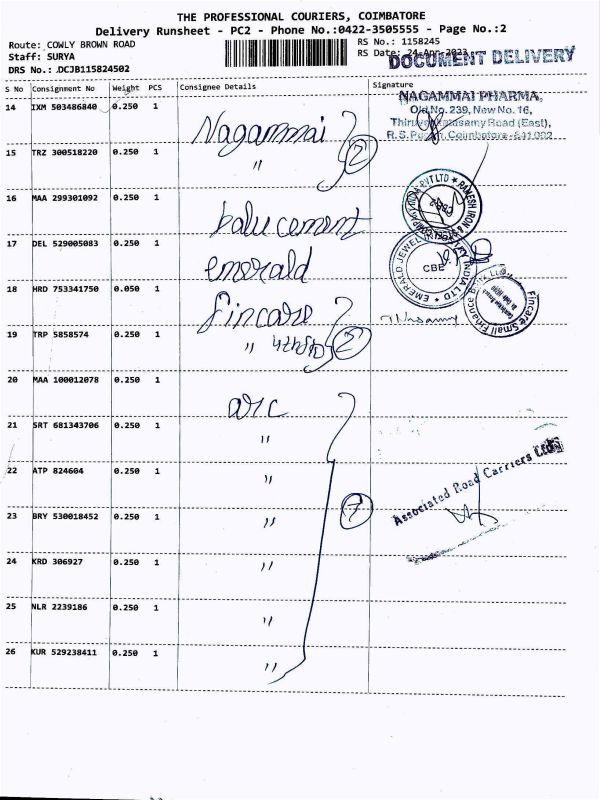 THE PROFESSIONAL COURIERS, COIMBATORE
Delivery Runsheet - PC2 - Phone No.:0422-3505555 - Page No.:2
Route: COWLY BROWN ROAD
RS No.: 1158245
Staff: SURYA
RS Date: 24-Apr-2023
DOCUMENT DELIVERY
DRS No.: .DCJB115824502
S No Consignment No Weight PCS Consignee Details Signature
14 IXM 503486840 0.250 1
Nagammai
NAGAMMAI PHARMA,
Old No. 239, New No. 16,
Thiruvenkatasamy Road (East),
R.S. Puram, Coimbatore-641 002
15 TRZ 300518220 0.250 1
" 2
16 MAA 299301092 0.250 1
balu cement
RAMESH IRON &
PVT LTD
CBE-2
17 DEL 529005083 0.250 1
emerald
EMERALD JEWEL INDUSTRY INDIA LTD
CBE
18 HRD 753341750 0.050 1
fincare
Fincare Small Finance Bank Ltd.
19 TRP 5858574 0.250 1
" 2
20 MAA 100012078 0.250 1
arc
21 SRT 681343706 0.250 1
"
22 ATP 824604 0.250 1
"
Associated Road Carriers Ltd.
23 BRY 530018452 0.250 1
" 7
24 KRD 306927 0.250 1
"
25 NLR 2239186 0.250 1
"
26 KUR 529238411 0.250 1
"